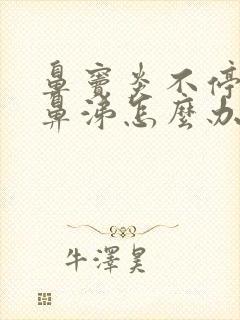 鼻竇炎不停
鼻涕怎麼办
牛澤昊